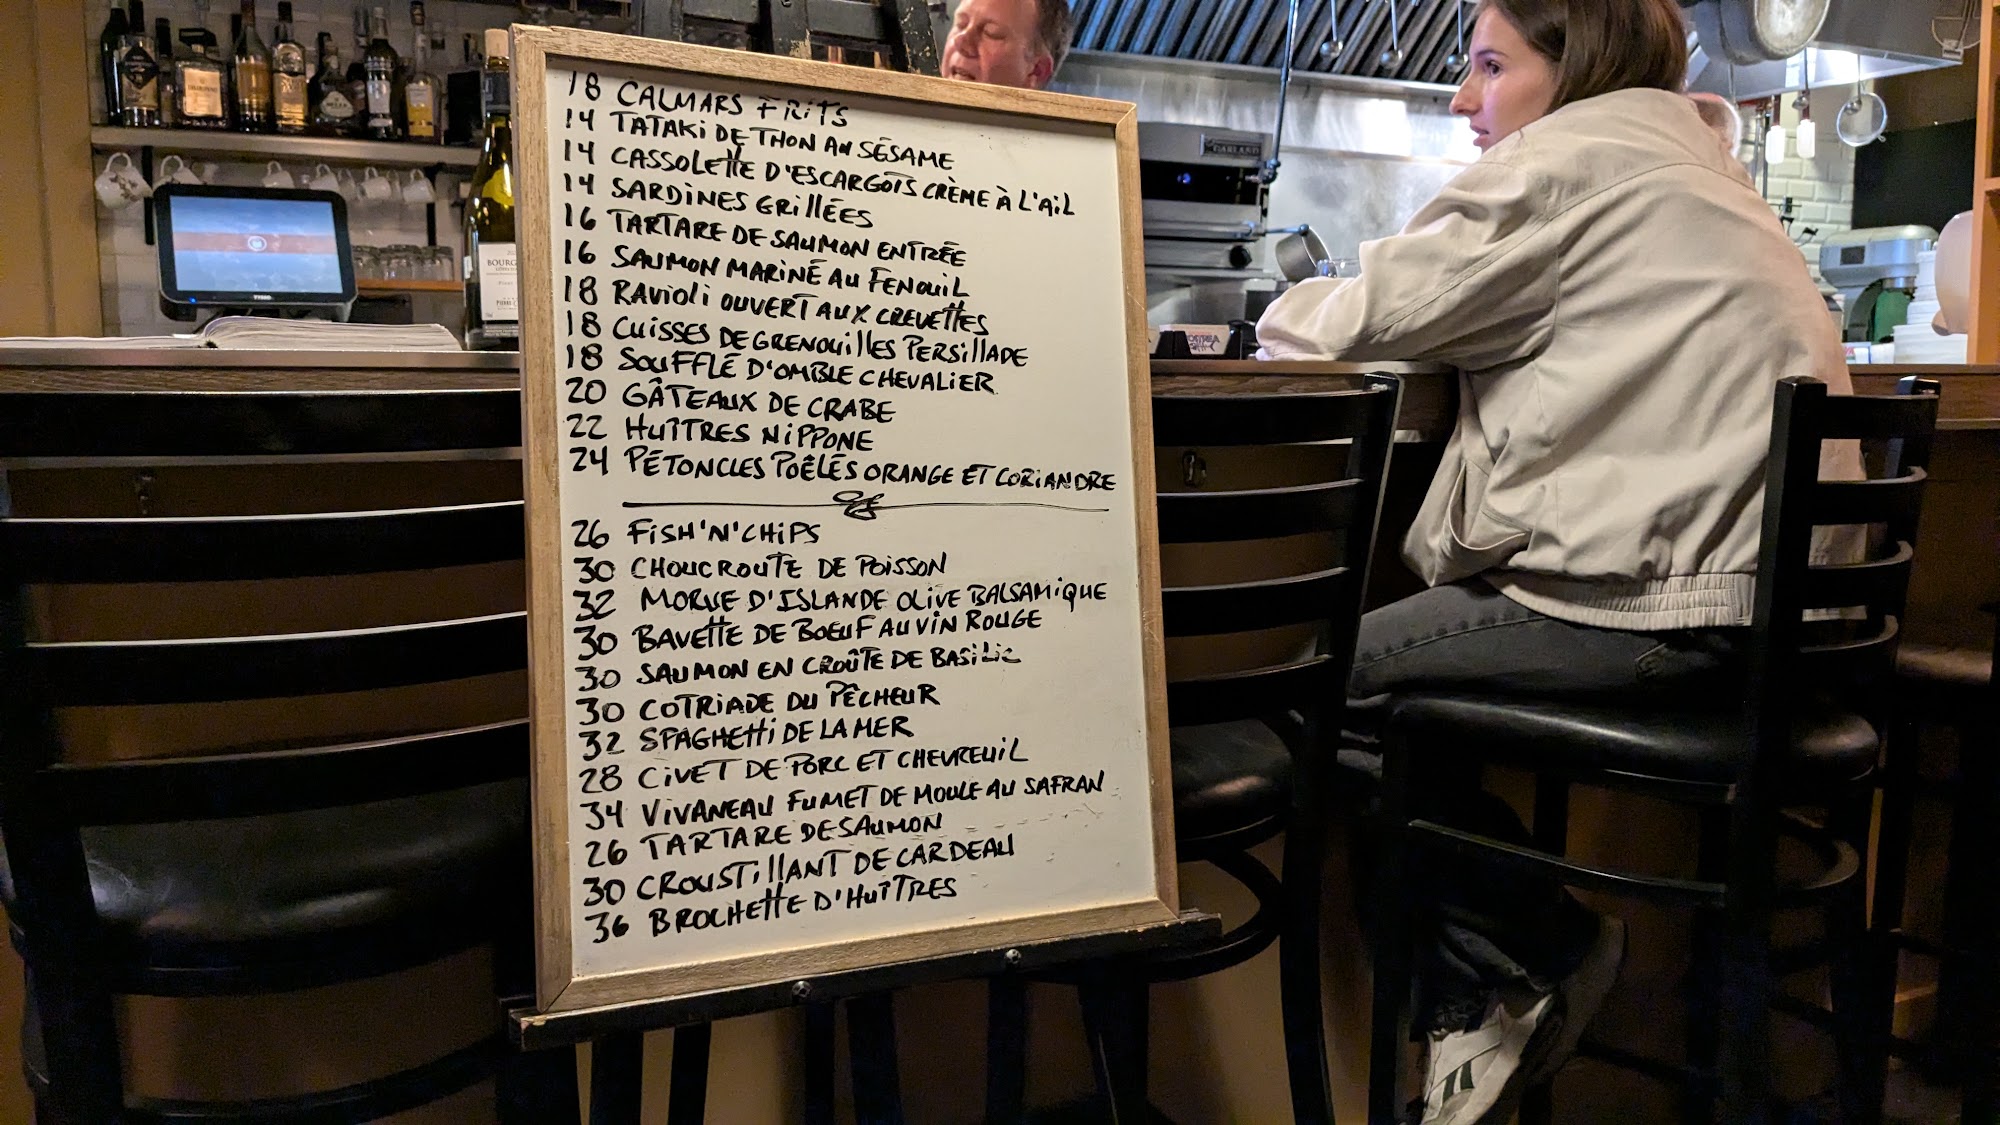 18 CALMARS FRITS
14 TATAKI DE THON AU SÉSAME
14 CASSOLETTE D'ESCARGOTS CRÈME À L'AIL
14 SARDINES GRILLÉES
16 TARTARE DE SAUMON ENTRÉE
16 SAUMON MARINÉ AU FENOUIL
18 RAVIOLI OUVERT AUX CREVETTES
18 CUISSES DE GRENOUILLES PERSILLADE
18 SOUFFLÉ D'OMBLE CHEVALIER
20 GÂTEAUX DE CRABE
22 HUÎTRES NIPPONE
24 PÉTONCLES POÊLÉS ORANGE ET CORIANDRE
26 FISH'N'CHIPS
30 CHOUCROUTE DE POISSON
32 MORUE D'ISLANDE OLIVE BALSAMIQUE
30 BAVETTE DE BOEUF AU VIN ROUGE
30 SAUMON EN CROÛTE DE BASILIC
30 COTRIADE DU PÊCHEUR
32 SPAGHETTI DE LA MER
28 CIVET DE PORC ET CHEVREUIL
34 VIVANEAU FUMET DE MOULE AU SAFRAN
26 TARTARE DE SAUMON
30 CROUSTILLANT DE CARDEAU
36 BROCHETTE D'HUÎTRES
GARLAND